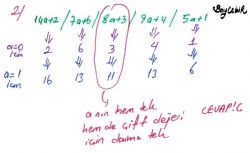 2/ 14a+2 / 7a+6 / 8a+3 / 9a+4 / 5a+1
a=0 için 2 6 3 4 1
a=1 için 16 13 11 13 6
a nın hem tek
hem de çift değeri
için daima tek
CEVAP: C